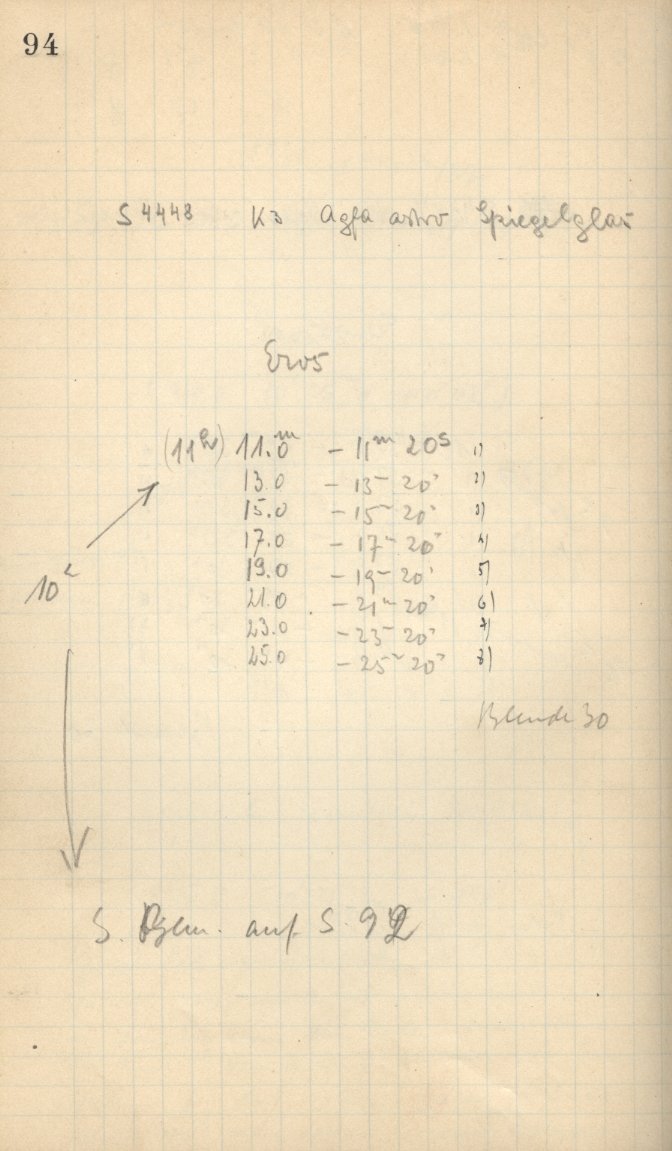 94
S 4448 K3 Agfa astro Spiegelglas
Eros
(11h) 11.0m – 11m 20s 1)
13.0 – 13m 20s 2)
15.0 – 15m 20s 3)
17.0 – 17m 20s 4)
19.0 – 19m 20s 5)
21.0 – 21m 20s 6)
23.0 – 23m 20s 7)
25.0 – 25m 20s 8)
10
Blende 30
S. auf S. 92